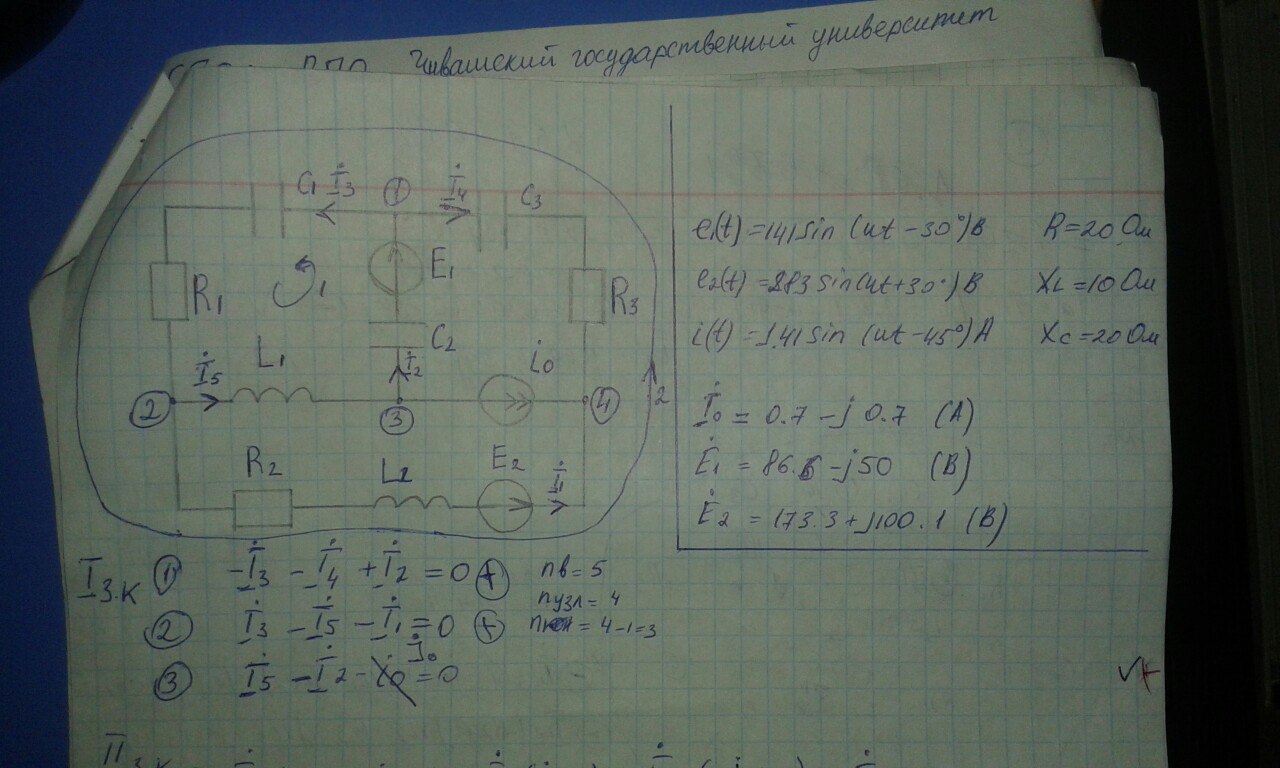 Чувашский государственный университет
C₁ İ₃ ① İ₄ C₃
R₁ 1 E₁ R₃
C₂
L₁ İ₂ i₀
İ₅
② ③ ④ 2
R₂ L₂ E₂ İ₁
e₁(t)=141sin(ωt-30°)В R=20 Ом
e₂(t)=283sin(ωt+30°)В XL=10 Ом
i(t)=1,41sin(ωt-45°)А Xc=20 Ом
İ₀ = 0.7-j0.7 (А)
Ė₁ = 86.6-j50 (В)
Ė₂ = 173.3+j100.1 (В)
I З.К ① -İ₃ -İ₄ +İ₂ =0 (+) nв=5
nузл=4
② İ₃ -İ₅ -İ₁ =0 (+) =4-1=3
③ İ₅ -İ₂ -J̇₀ =0
II З.К